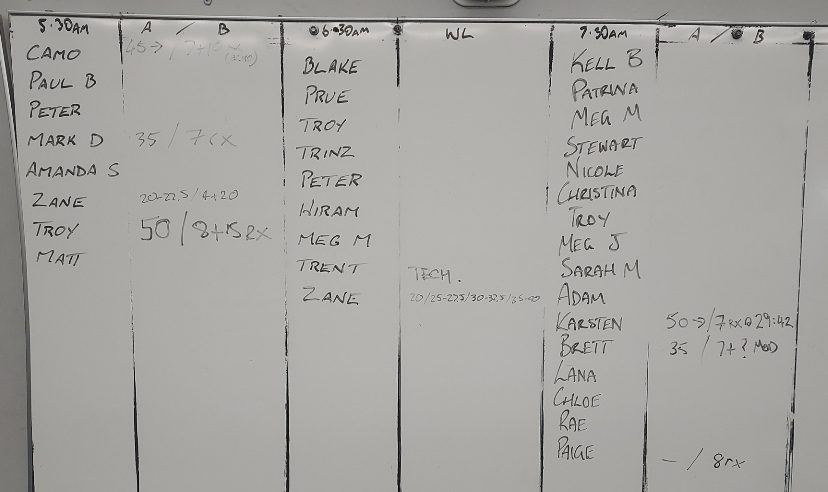 5.30AM A / B
CAMO 45→ / 7+15
PAUL B
PETER
MARK D 35 / 7rx
AMANDA S
ZANE 20-22.5 / 4+20
TROY 50 / 8+15 RX
MATT
6.30AM WL
BLAKE
PRUE
TROY
TRINZ
PETER
HIRAM
MEG M
TRENT TECH.
ZANE 20/25-27.5/30-32.5/35-40
7.30AM A / B
KELL B
PATRINA
MEG M
STEWART
NICOLE
CHRISTINA
TROY
MEG J
SARAH M
ADAM
KARSTEN 50→/7RX@29:42
BRETT 35 / 7+? MOD
LANA
CHLOE
RAE
PAIGE – / 8rx